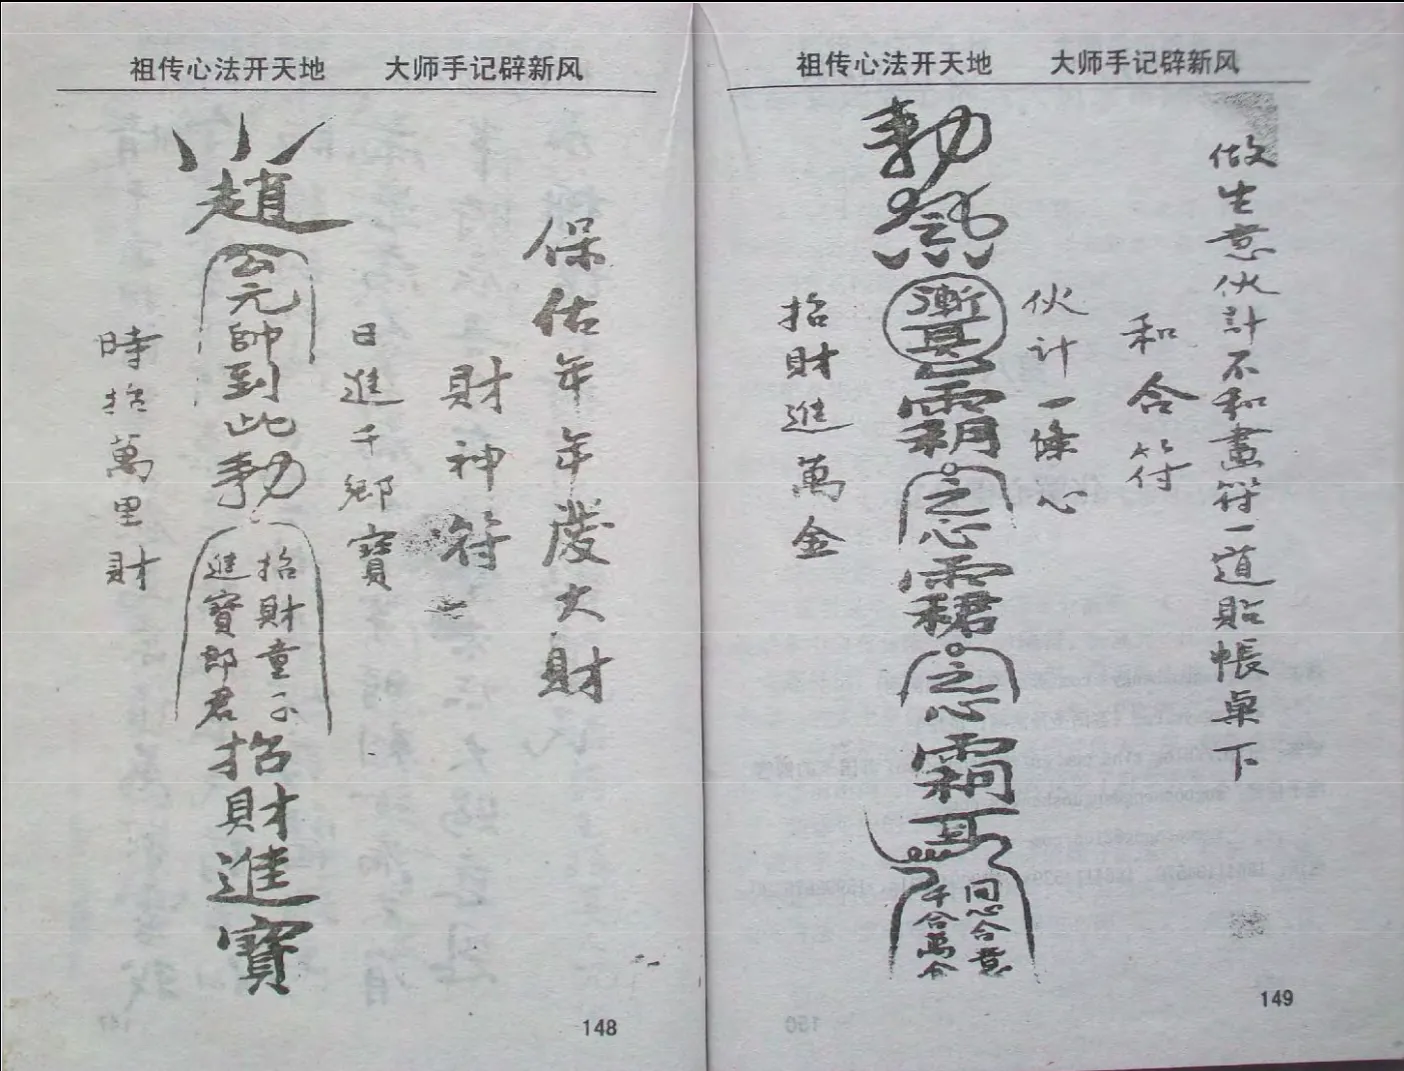 祖传心法开天地 大师手记辟新风
做生意伙計不和畫符一道貼帳桌下
和合符
伙计一條心
勅
之心
之心
同心合意
千合萬合
招財進萬金
149
祖传心法开天地 大师手记辟新风
保佑年年發大財
財神符
日進千鄉寶
趙公元帥到此勅
招財童子
進寶郎君
招財進寶
時招萬里財
148